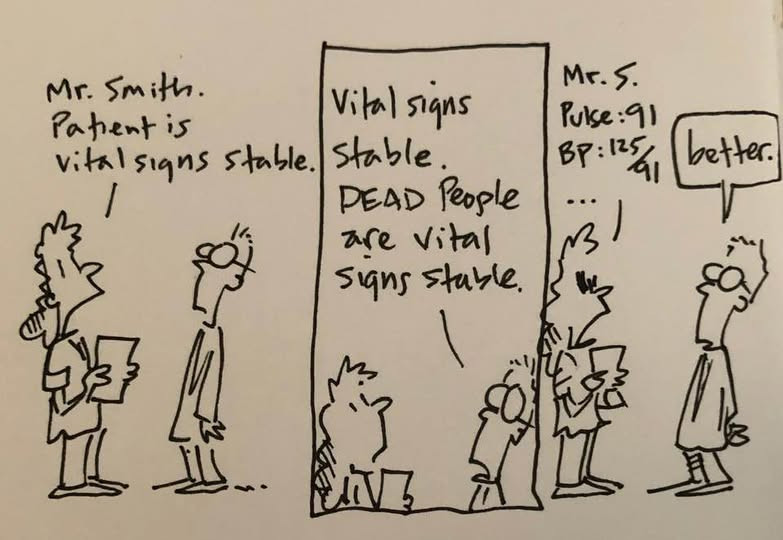 Mr. Smith.
Patient is
vital signs stable.
Vital signs
stable.
DEAD People
are vital
signs stable.
Mr. S.
Pulse: 91
BP: 125/91
...
better.